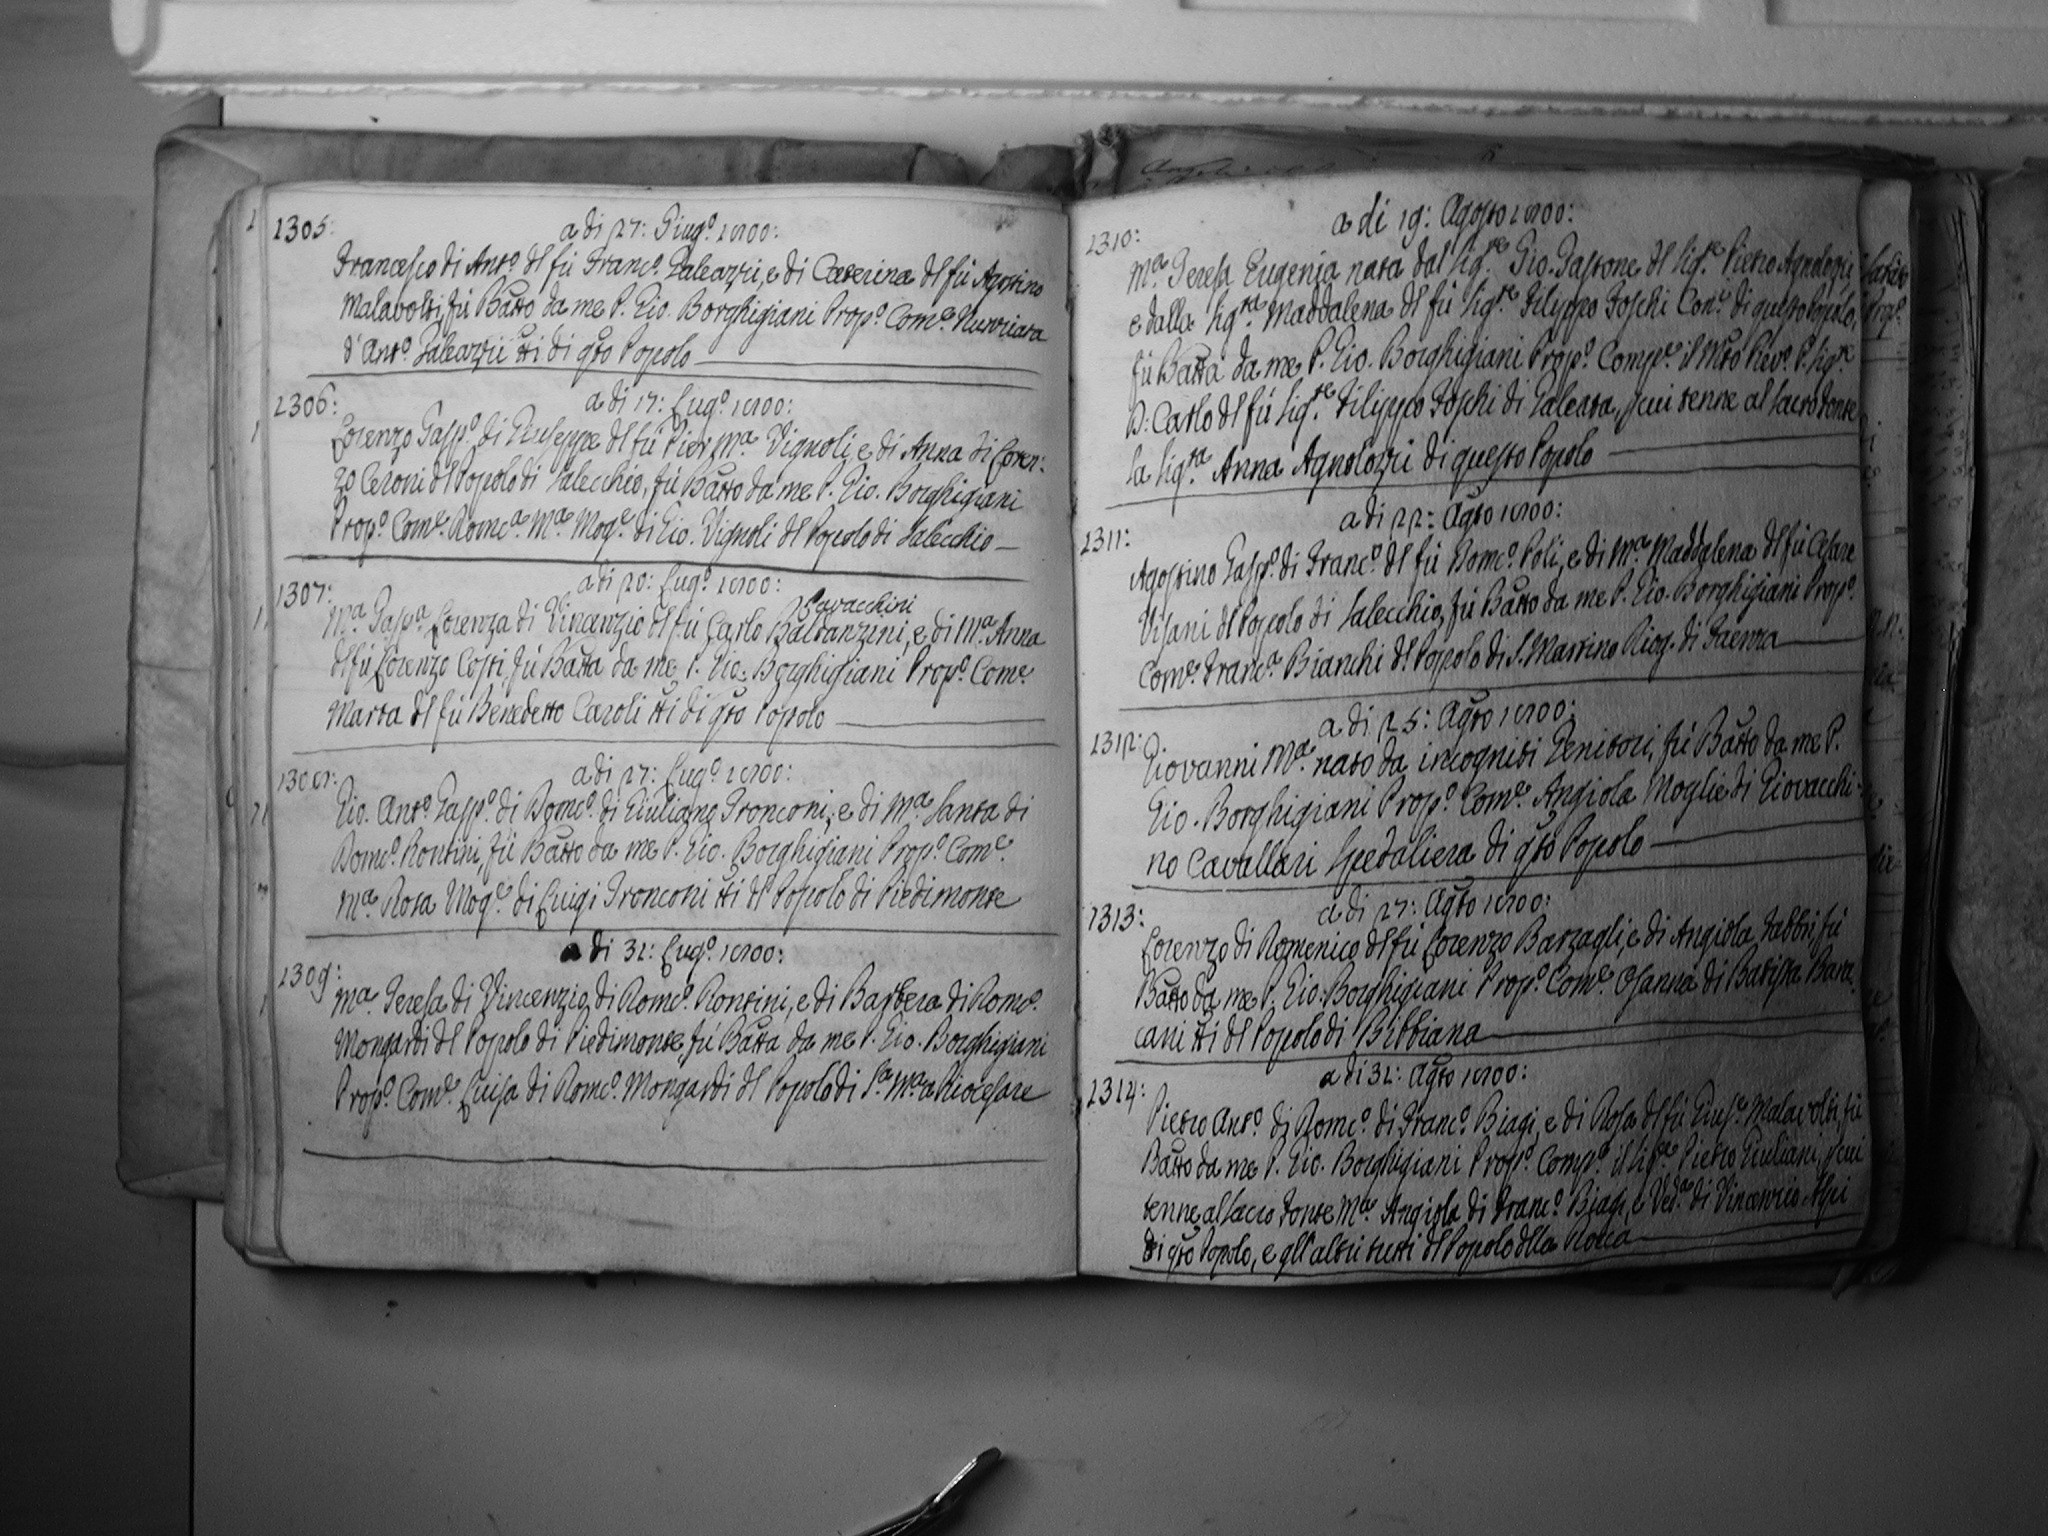 1305:
a di 27: Giug.º 1800:
Francesco di Ant.º dl fù Franc.º Galeazzii, e di Caterina dl fù Agostino
Malavolti, fù Batto da me P. Gio. Borghigiani Prop.º Com.e Nunziata
d'Ant.º Galeazzii tti di qsto Popolo
1306:
a di 17: Lug.º 1800:
Lorenzo Gasp.º di Giuseppe dl fù Pier M.a Vignoli, e di Anna di Loren:
zo Ceroni dl Popolo di Salecchio, fù Batto da me P. Gio. Borghigiani
Prop.º Com.e Domc.a M.a Mog.e di Gio. Vignoli dl Popolo di Salecchio
1307:
a di 20: Lug.º 1800:
Savacchini
M.a Gasp.a Lorenza di Vincenzio dl fù Carlo Baldanzini, e di M.a Anna
dl fù Lorenzo Costi, fù Batta da me P. Gio. Borghigiani Prop.º Com.e
Marta dl fù Benedetto Caroli tti di qsto Popolo
1308:
a di 27: Lug.º 1800:
Gio. Ant.º Gasp.º di Domc.º di Giuliano Tronconi, e di M.a Santa di
Domc.º Rontini, fù Batto da me P. Gio. Borghigiani Prop.º Com.e
M.a Rosa Mog.e di Luigi Tronconi tti dl Popolo di Piedimonte
a di 31: Lug.º 1800:
1309:
M.a Teresa di Vincenzio di Domc.º Rontini, e di Barbera di Domc.º
Mongardi dl Popolo di Piedimonte, fù Batta da me P. Gio. Borghigiani
Prop.º Com.e Luisa di Domc.º Mongardi dl Popolo di S.a M.a a Riocesare
1310:
a di 19: Agosto 1800:
M.a Teresa Eugenia nata dal Sig.re Gio. Gastone dl Sig.re Pietro
e dalla Sig.ra Maddalena dl fù Sig.re Filippo Foschi Con.i di questo Popolo,
fù Batta da me P. Gio. Borghigiani Prop.º Comp.e il Mto Rev.º P. Sig.re
D: Carlo dl fù Sig.re Filippo Foschi di Galeata, p cui tenne al sacro Fonte
la Sig.ra Anna Agnolozzi di questo Popolo
1311:
a di 22: Agsto 1800:
Agostino Gasp.º di Franc.º dl fù Domc.º Poli, e di M.a Maddalena dl fù Cesare
Visani dl Popolo di Salecchio, fù Batto da me P. Gio. Borghigiani Prop.º
Com.e Franc.a Bianchi dl Popolo di S. Martino Diog. di Faenza
1312:
a di 25: Agsto 1800:
Giovanni M.a nato da incogniti Genitori, fù Batto da me P.
Gio. Borghigiani Prop.º Com.e Angiola Moglie di Giovacchi-
no Cavallari Spedaliera di qsto Popolo
1313:
a di 27: Agsto 1800:
Lorenzo di Domenico dl fù Lorenzo Barzagli, e di Angiola Fabbri, fù
Batto da me P. Gio: Borghigiani Prop.º Com.e Osanna di Batista Bara:
cani tti dl Popolo di Bibbiana
1314:
a di 31: Agsto 1800:
Pietro Ant.º di Domc.º di Franc.º Biagi, e di Rosa dl fù Gius.e Malavolti, fù
Batto da me P. Gio. Borghigiani Prop.º Comp.e il Sig.re Pietro Giuliani, p cui
tenne al sacro Fonte M.a Angiola di Franc.º Biagi, e Ved.a di Vincenzio Alpi
di qsto Popolo, e gl'altri tutti dl Popolo dlla Rocca